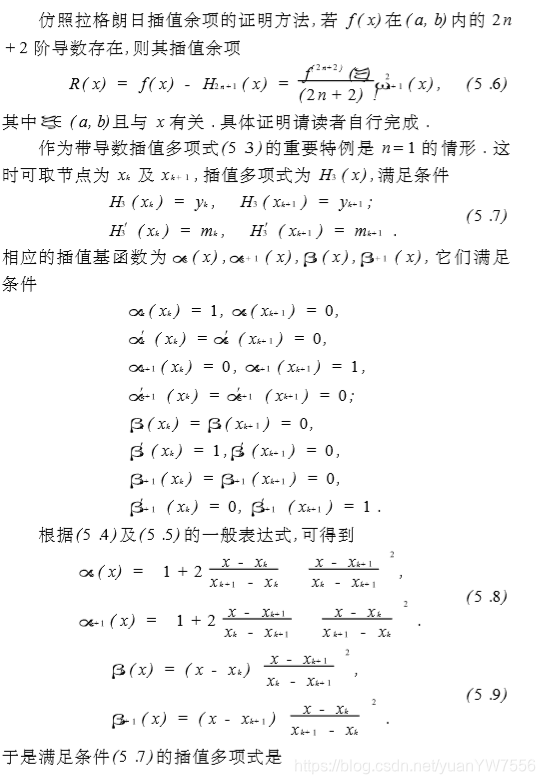 仿照拉格朗日插值余项的证明方法,若 f(x)在(a, b)内的 2n
+2 阶导数存在,则其插值余项
R(x) = f(x) - H₂ₙ₊₁(x) = f⁽²ⁿ⁺²⁾(ξ)/(2n+2)! ω²ₙ₊₁(x), (5.6)
其中 ξ∈(a, b)且与 x 有关.具体证明请读者自行完成.
作为带导数插值多项式(5.3)的重要特例是 n=1 的情形.这
时可取节点为 xₖ 及 xₖ₊₁,插值多项式为 H₃(x),满足条件
H₃(xₖ) = yₖ, H₃(xₖ₊₁) = yₖ₊₁;
H₃′(xₖ) = mₖ, H₃′(xₖ₊₁) = mₖ₊₁. (5.7)
相应的插值基函数为 αₖ(x),αₖ₊₁(x),βₖ(x),βₖ₊₁(x),它们满足
条件
αₖ(xₖ) = 1, αₖ(xₖ₊₁) = 0,
αₖ′(xₖ) = αₖ′(xₖ₊₁) = 0,
αₖ₊₁(xₖ) = 0, αₖ₊₁(xₖ₊₁) = 1,
αₖ₊₁′(xₖ) = αₖ₊₁′(xₖ₊₁) = 0;
βₖ(xₖ) = βₖ(xₖ₊₁) = 0,
βₖ′(xₖ) = 1, βₖ′(xₖ₊₁) = 0,
βₖ₊₁(xₖ) = βₖ₊₁(xₖ₊₁) = 0,
βₖ₊₁′(xₖ) = 0, βₖ₊₁′(xₖ₊₁) = 1.
根据(5.4)及(5.5)的一般表达式,可得到
αₖ(x) = 1 + 2 (x - xₖ)/(xₖ₊₁ - xₖ) (x - xₖ₊₁)/(xₖ - xₖ₊₁) ²,
αₖ₊₁(x) = 1 + 2 (x - xₖ₊₁)/(xₖ - xₖ₊₁) (x - xₖ)/(xₖ₊₁ - xₖ) ². (5.8)
βₖ(x) = (x - xₖ) (x - xₖ₊₁)/(xₖ - xₖ₊₁) ²,
βₖ₊₁(x) = (x - xₖ₊₁) (x - xₖ)/(xₖ₊₁ - xₖ) ². (5.9)
于是满足条件(5.7)的插值多项式是
https://blog.csdn.net/yuanYW7556